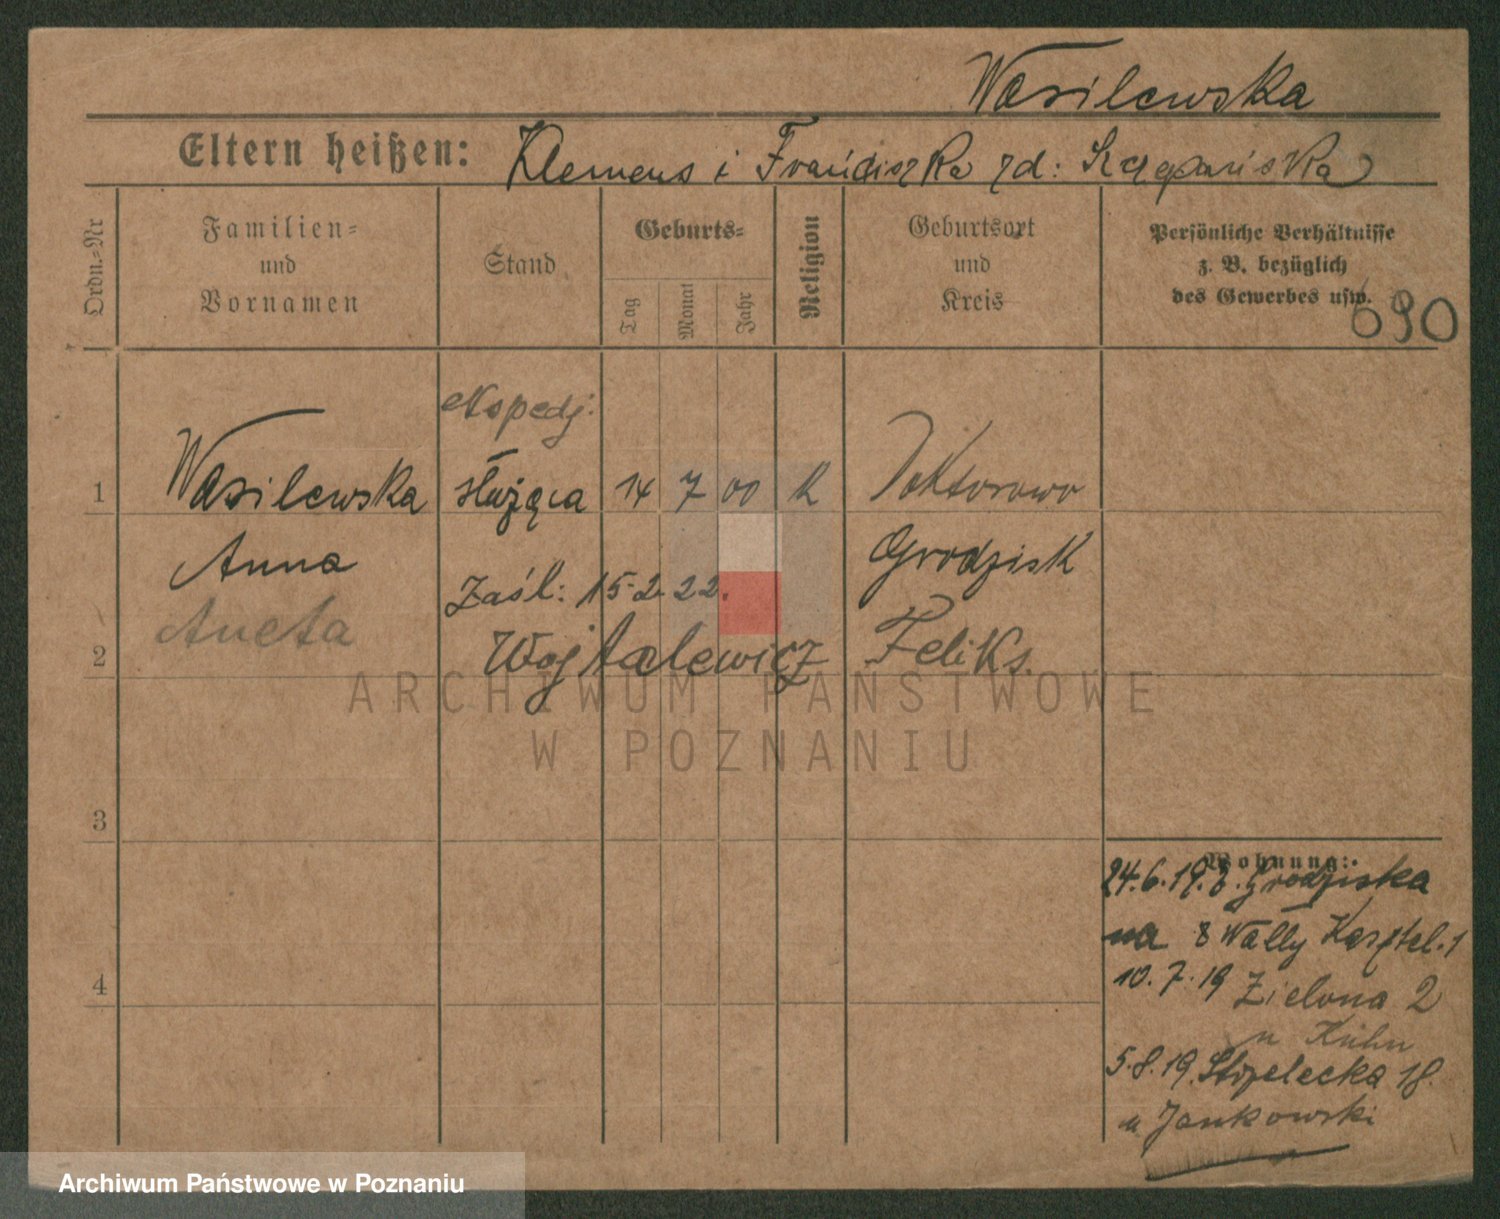 Wasilewska
Eltern heißen: Klemens i Franciszka zd:
Ordn.-Nr
Familien-
und
Vornamen
Stand
Geburts-
Tag
Monat
Jahr
Religion
Geburtsort
und
Kreis
Persönliche Verhältnisse
z. B. bezüglich
des Gewerbes usw.
690
ekspedj.
1 Wasilewska służąca 14 7 00 K Doktorowo
Anna Grodzisk
Zaśl: 15-2-22.
Aneta
2 Wojtalewicz Feliks.
ARCHIWUM PAŃSTWOWE
W POZNANIU
3
4
Wohnung:
24.6.19. z. Grodziska
na 8 Wally
10.7.19 Zielona 2
u Kühn
5.8.19. Strzelecka 18.
u Jankowski
Archiwum Państwowe w Poznaniu